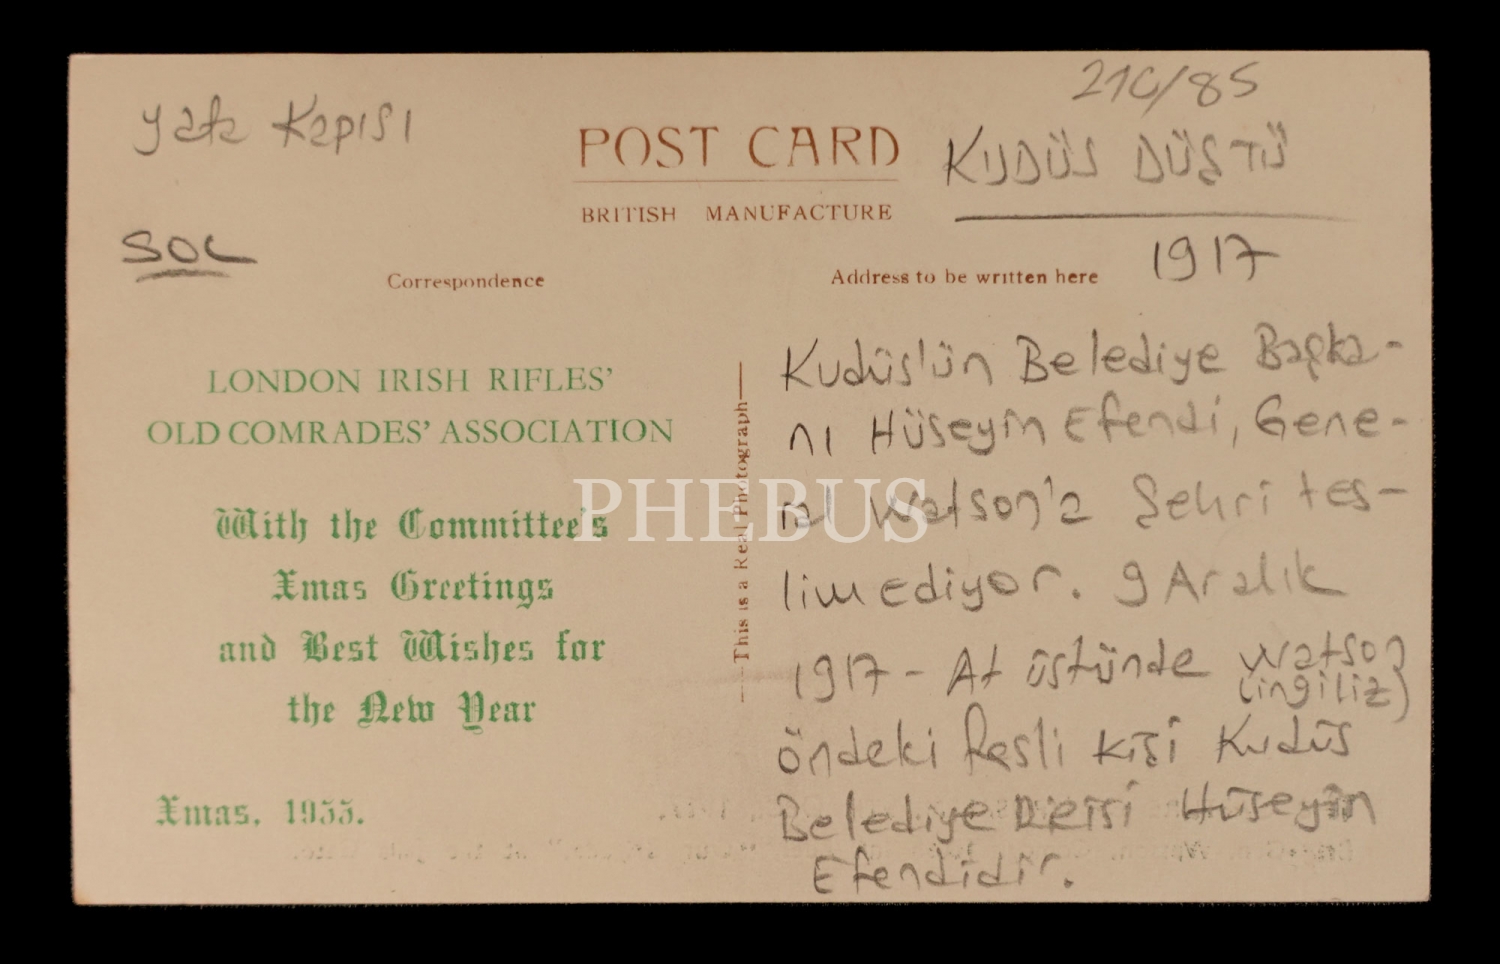 Yafa Kapısı
SOL
POST CARD
BRITISH MANUFACTURE
Correspondence
Address to be written here
LONDON IRISH RIFLES'
OLD COMRADES' ASSOCIATION
With the Committee's
Xmas Greetings
and Best Wishes for
the New Year
Xmas, 1955.
This is a Real Photograph
/85
KUDÜS DÜŞTÜ
1917
Kudüs'ün Belediye Başka-
nı Hüseyin Efendi, Gene-
ral Watson'a Şehri tes-
lim ediyor. 9 Aralık
1917 - At üstünde Watson
(ingiliz)
öndeki fesli kişi Kudüs
Belediye Reisi Hüseyin
Efendidir.
PHEBUS